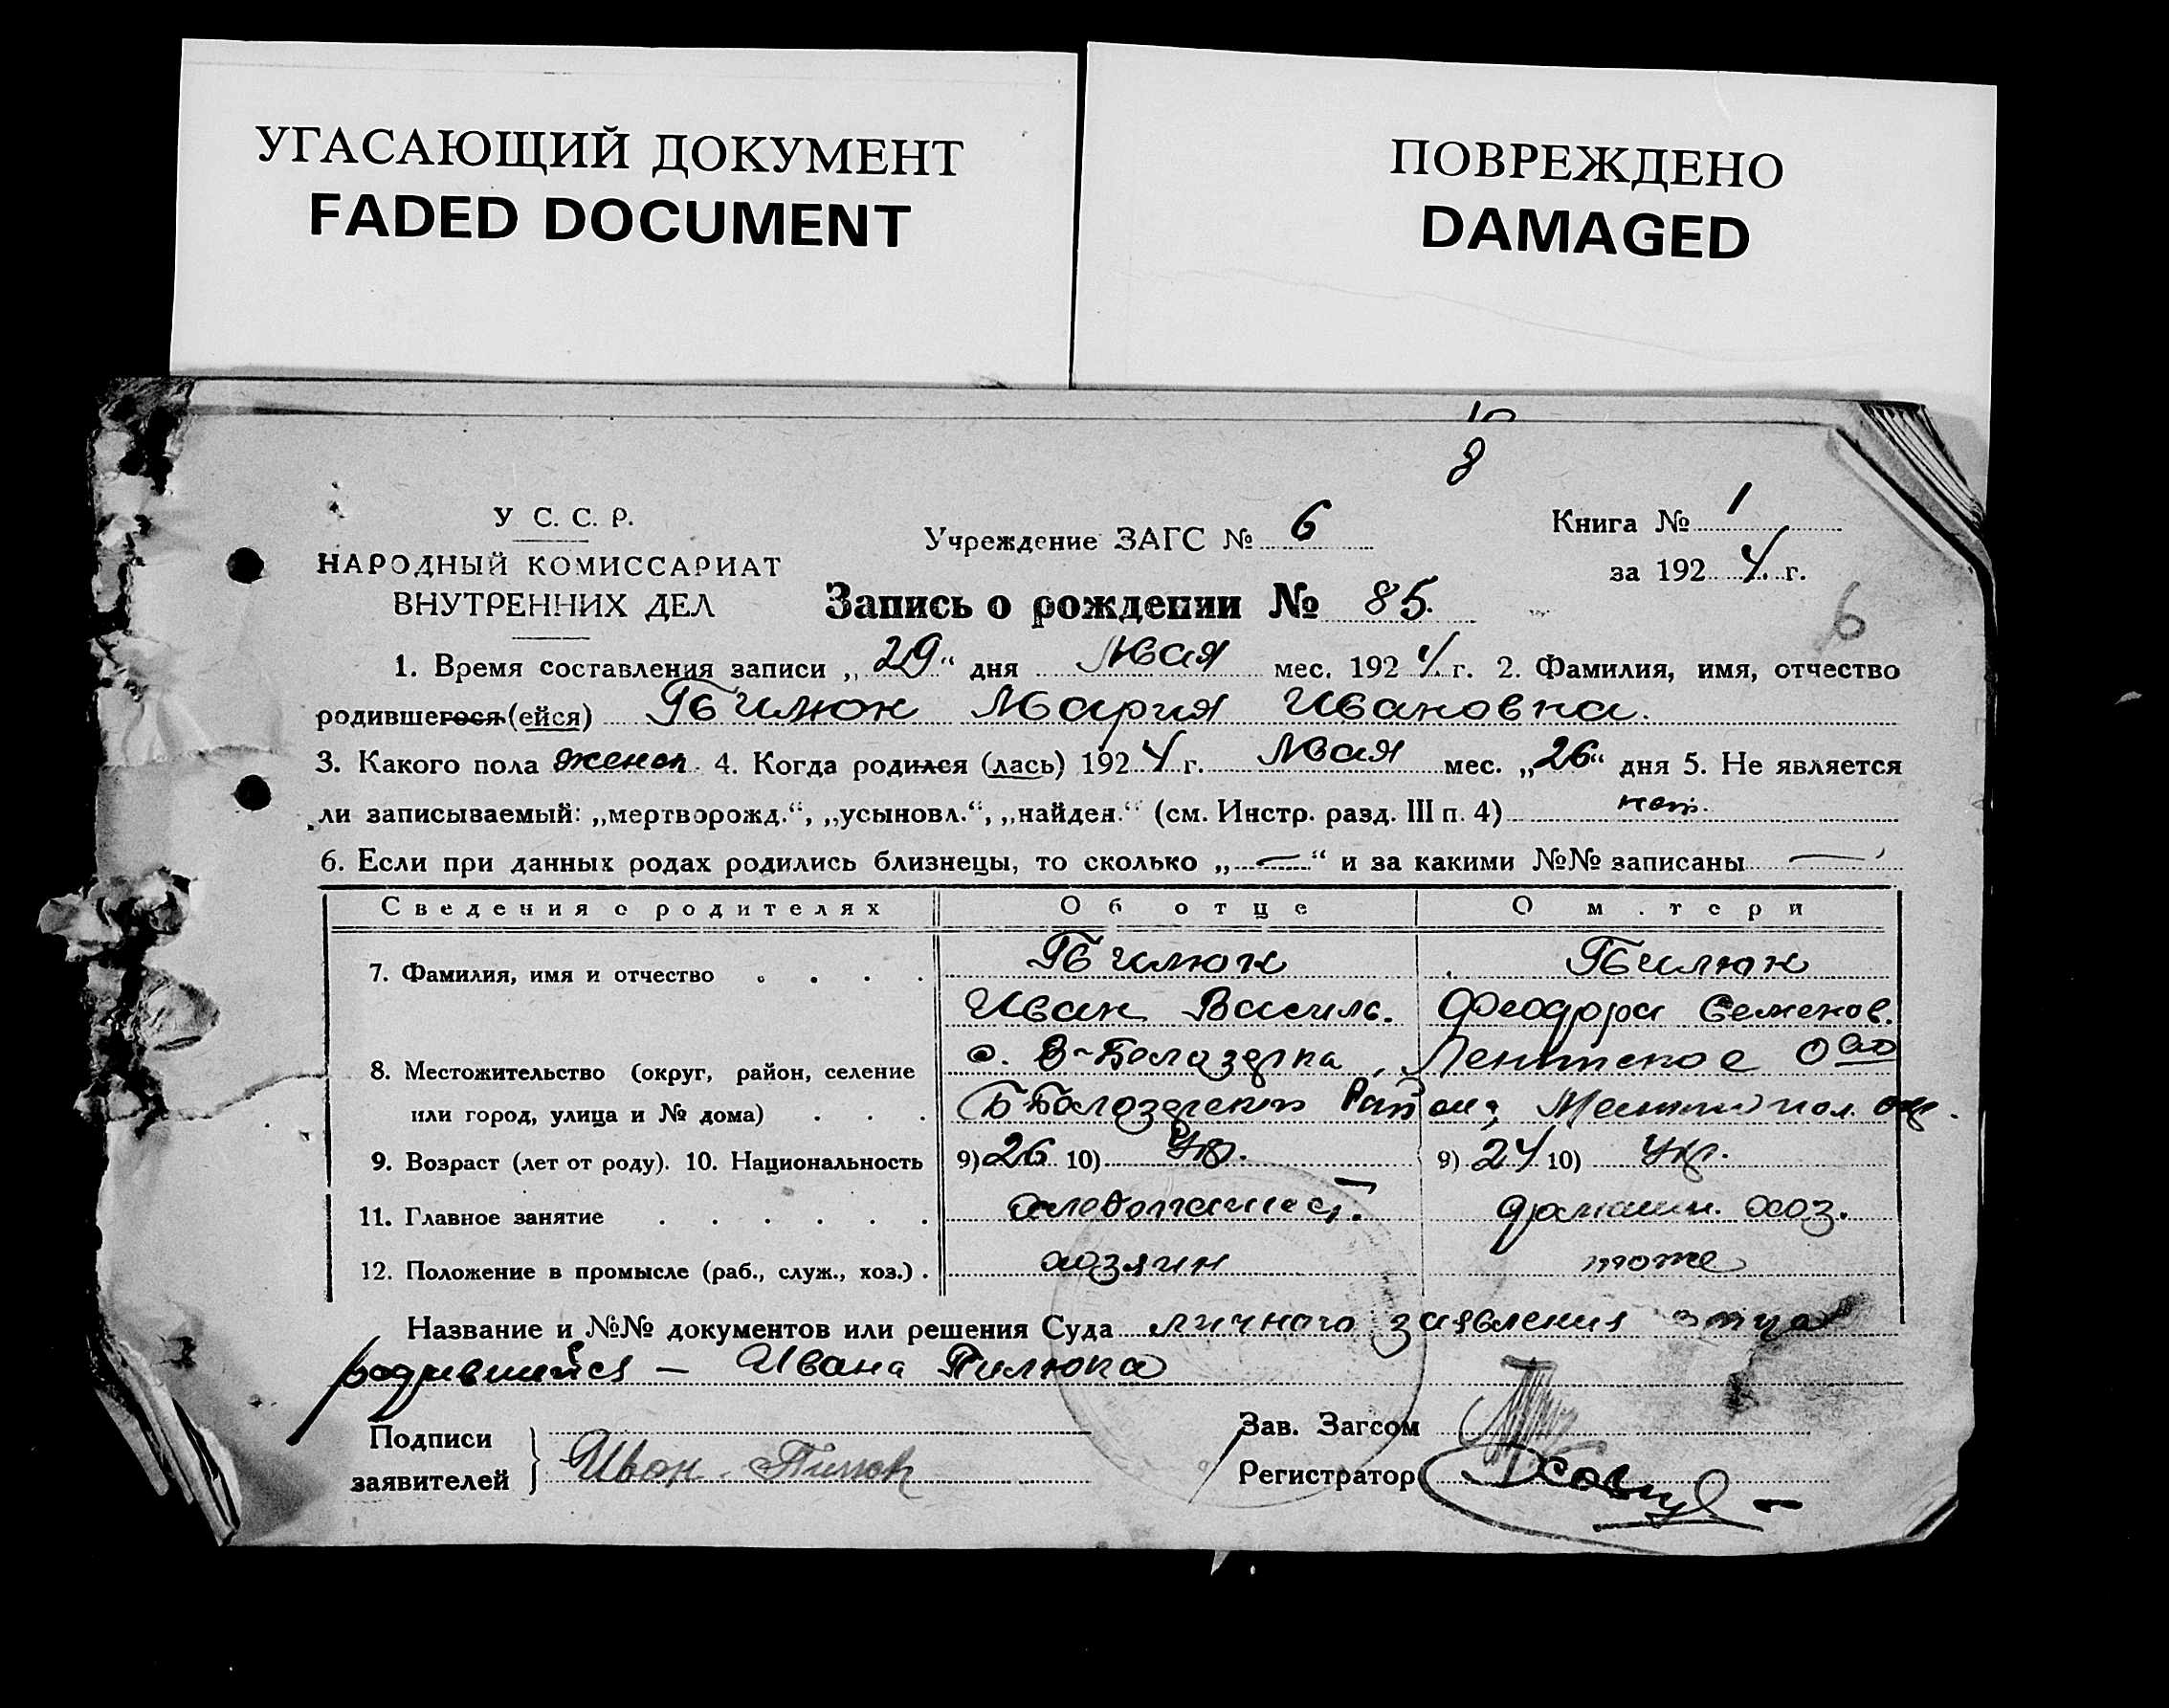 УГАСАЮЩИЙ ДОКУМЕНТ
FADED DOCUMENT
ПОВРЕЖДЕНО
DAMAGED
8
У С. С. Р.
НАРОДНЫЙ КОМИССАРИАТ
ВНУТРЕННИХ ДЕЛ
Учреждение ЗАГС № 6
Книга № 1
за 1924 г.
Запись о рождении № 85.
6
1. Время составления записи „29“ дня Мая мес. 1924 г. 2. Фамилия, имя, отчество
родившегося (ейся) Пилюк Мария Ивановна.
3. Какого пола женск. 4. Когда родился (лась) 1924 г. Мая мес. „26“ дня 5. Не является
ли записываемый: „мертворожд.“, „усыновл.“, „найден.“ (см. Инстр. разд. III п. 4) нет.
6. Если при данных родах родились близнецы, то сколько „—“ и за какими №№ записаны —
Сведения о родителях Об отце О м.тери
7. Фамилия, имя и отчество Пилюк Пилюк
Иван Василь. Феодора Семенов.
8. Местожительство (округ, район, селение с. В-Белозерка, Ленинское
или город, улица и № дома) Б-Белозерского Района, Мелитопол. окр.
9. Возраст (лет от роду). 10. Национальность 9) 26 10) Укр. 9) 24 10) Укр.
11. Главное занятие хлебопашест. домашн. хоз.
12. Положение в промысле (раб., служ., хоз.) хозяин тоже
Название и №№ документов или решения Суда личного заявления отца
родившейся — Ивана Пилюка
Подписи
заявителей Иван Пилюк
Зав. Загсом
Регистратор